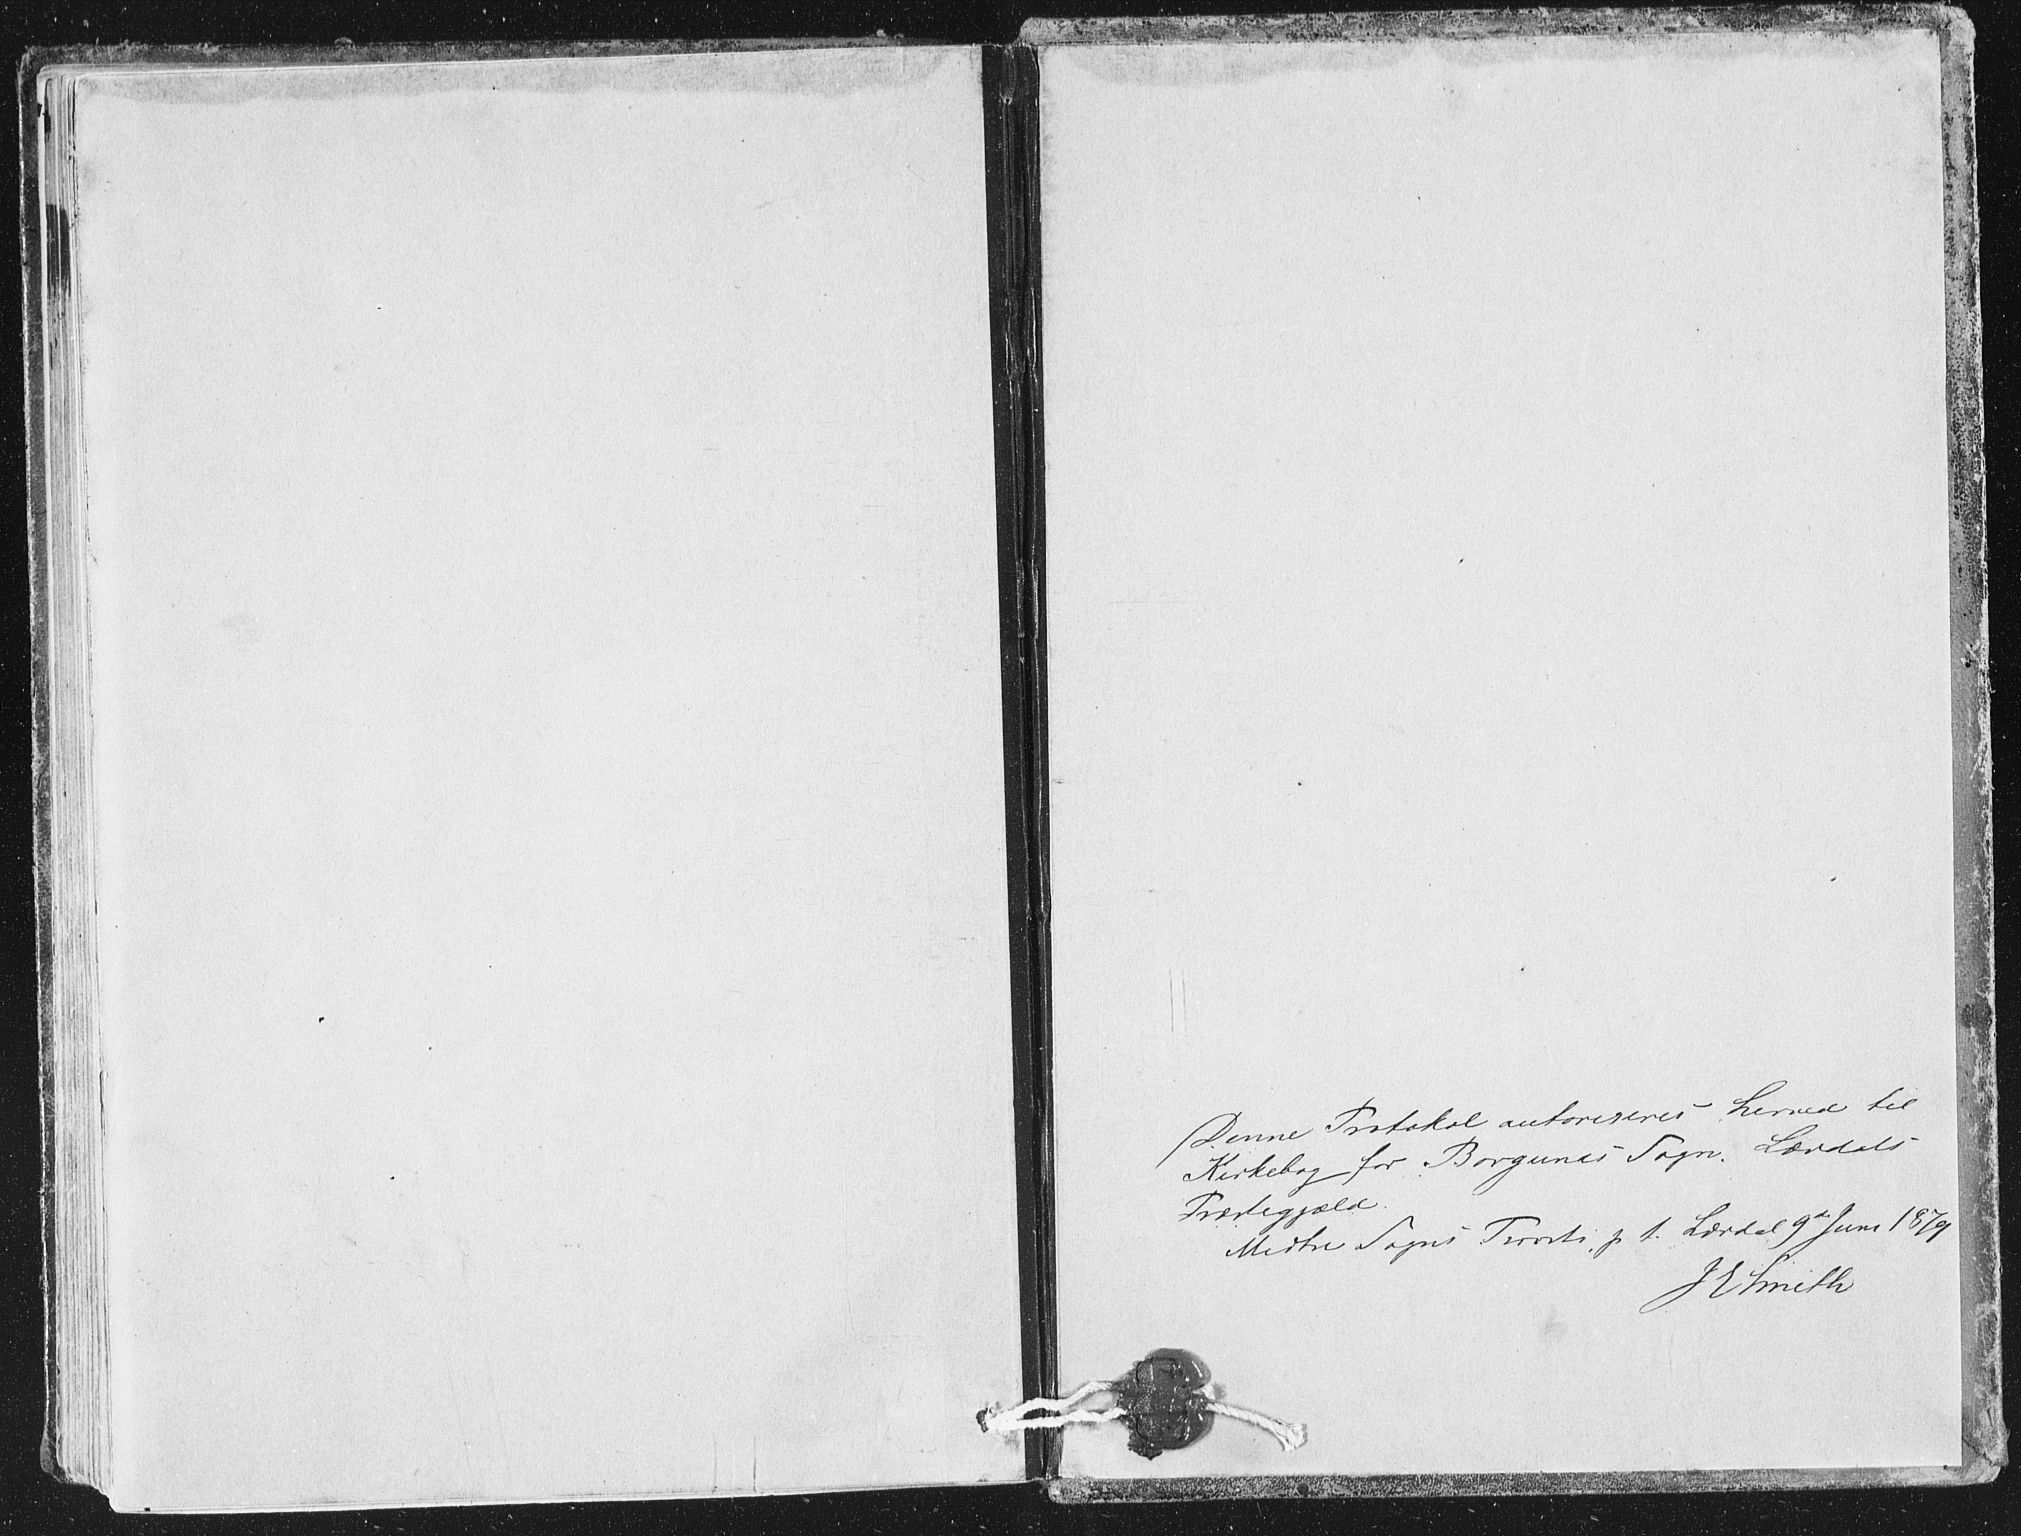 Denne Protokol autoriseres herved til
Kirkebog for Borgunds Sogn, Lærdals
Præstegjæld.
Midtre Sogns Provsti, p. t. Lærdal 9de Juni 1879
J E Smith